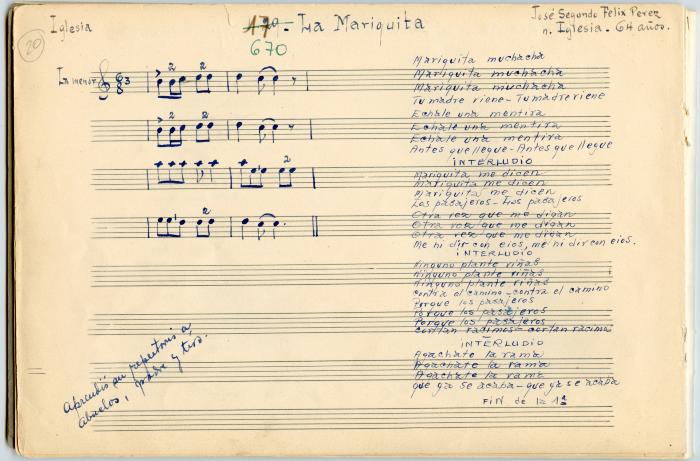 Iglesia
20
La Mariquita
670
José Segundo Félix Perez
n. Iglesia - 64 años.
La menor
6 3
8 8
2 2
2 2
2
2
Mariquita muchacha
Mariquita muchacha
Mariquita muchacha
Tu madre viene - Tu madre viene
Echale una mentira
Echale una mentira
Echale una mentira
Antes que llegue - Antes que llegue
INTERLUDIO
Mariquita me dicen
Mariquita me dicen
Mariquita me dicen
Los pasajeros - Los pasajeros
Otra vez que me digan
Otra vez que me digan
Otra vez que me digan
Me hi dir con eios, me hi dir con eios.
INTERLUDIO
Ninguno plante viñas
Ninguno plante viñas
Ninguno plante viñas
Contra el camino - contra el camino
Porque los pasajeros
Porque los pasajeros
Porque los pasajeros
Cortan racimos - cortan racima
INTERLUDIO
Agachate la rama
Agachate la rama
Agachate la rama
que ya se acaba - que ya se acaba
FIN de la 1ª
Aprendió su repertorio a
abuelos, padre y tíos.